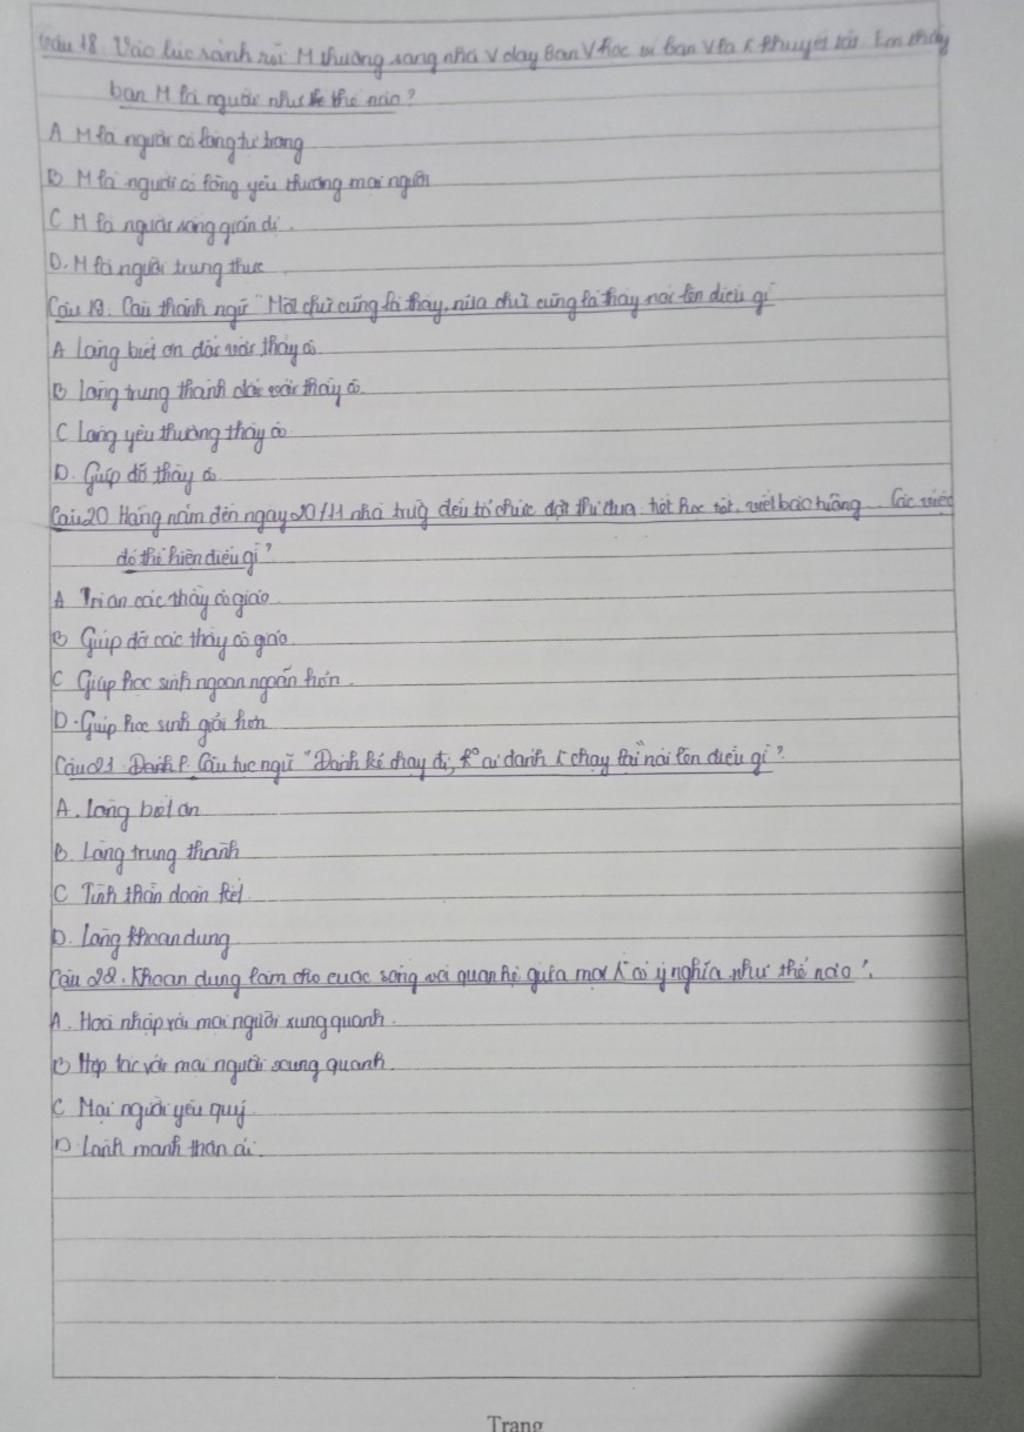 Câu 18. Vào lúc rảnh rỗi M thường sang nhà V dạy bạn V học vì bạn V là ᐸ khuyết tật. Em thấy
bạn M là người như thế nào?
A M là người có lòng tự trọng
B M là người có lòng yêu thương mọi người
C M là người sống giản dị.
D. M là người trung thực
Câu 19. Câu thành ngữ "Một chữ cũng là thầy, nửa chữ cũng là thầy nói lên điều gì
A Lòng biết ơn đối với thầy cô
B Lòng trung thành đối với thầy cô.
C Lòng yêu thương thầy cô
D. Giúp đỡ thầy cô
Câu 20 Hằng năm đến ngày 20/11 nhà trường đều tổ chức đợt thi đua tiết học tốt, viết báo tường. Các việc
đó thể hiện điều gì?
A Tri ân các thầy cô giáo
B Giúp đỡ các thầy cô giáo
C Giúp học sinh ngoan ngoãn hơn.
D. Giúp học sinh giỏi hơn
Câu 21 Câu tục ngữ "Đánh kẻ chạy đi, ko ai đánh ᐸ chạy lại" nói lên điều gì?
A. Lòng biết ơn
B. Lòng trung thành
C Tinh thần đoàn kết
D. Lòng khoan dung
Câu 22. Khoan dung làm cho cuộc sống và quan hệ giữa mọi ᐸ có ý nghĩa như thế nào?
A. Hoà nhập với mọi người xung quanh.
B Hợp tác với mọi người xung quanh.
C Mọi người yêu quý
D Lành mạnh thân ái.
Trang